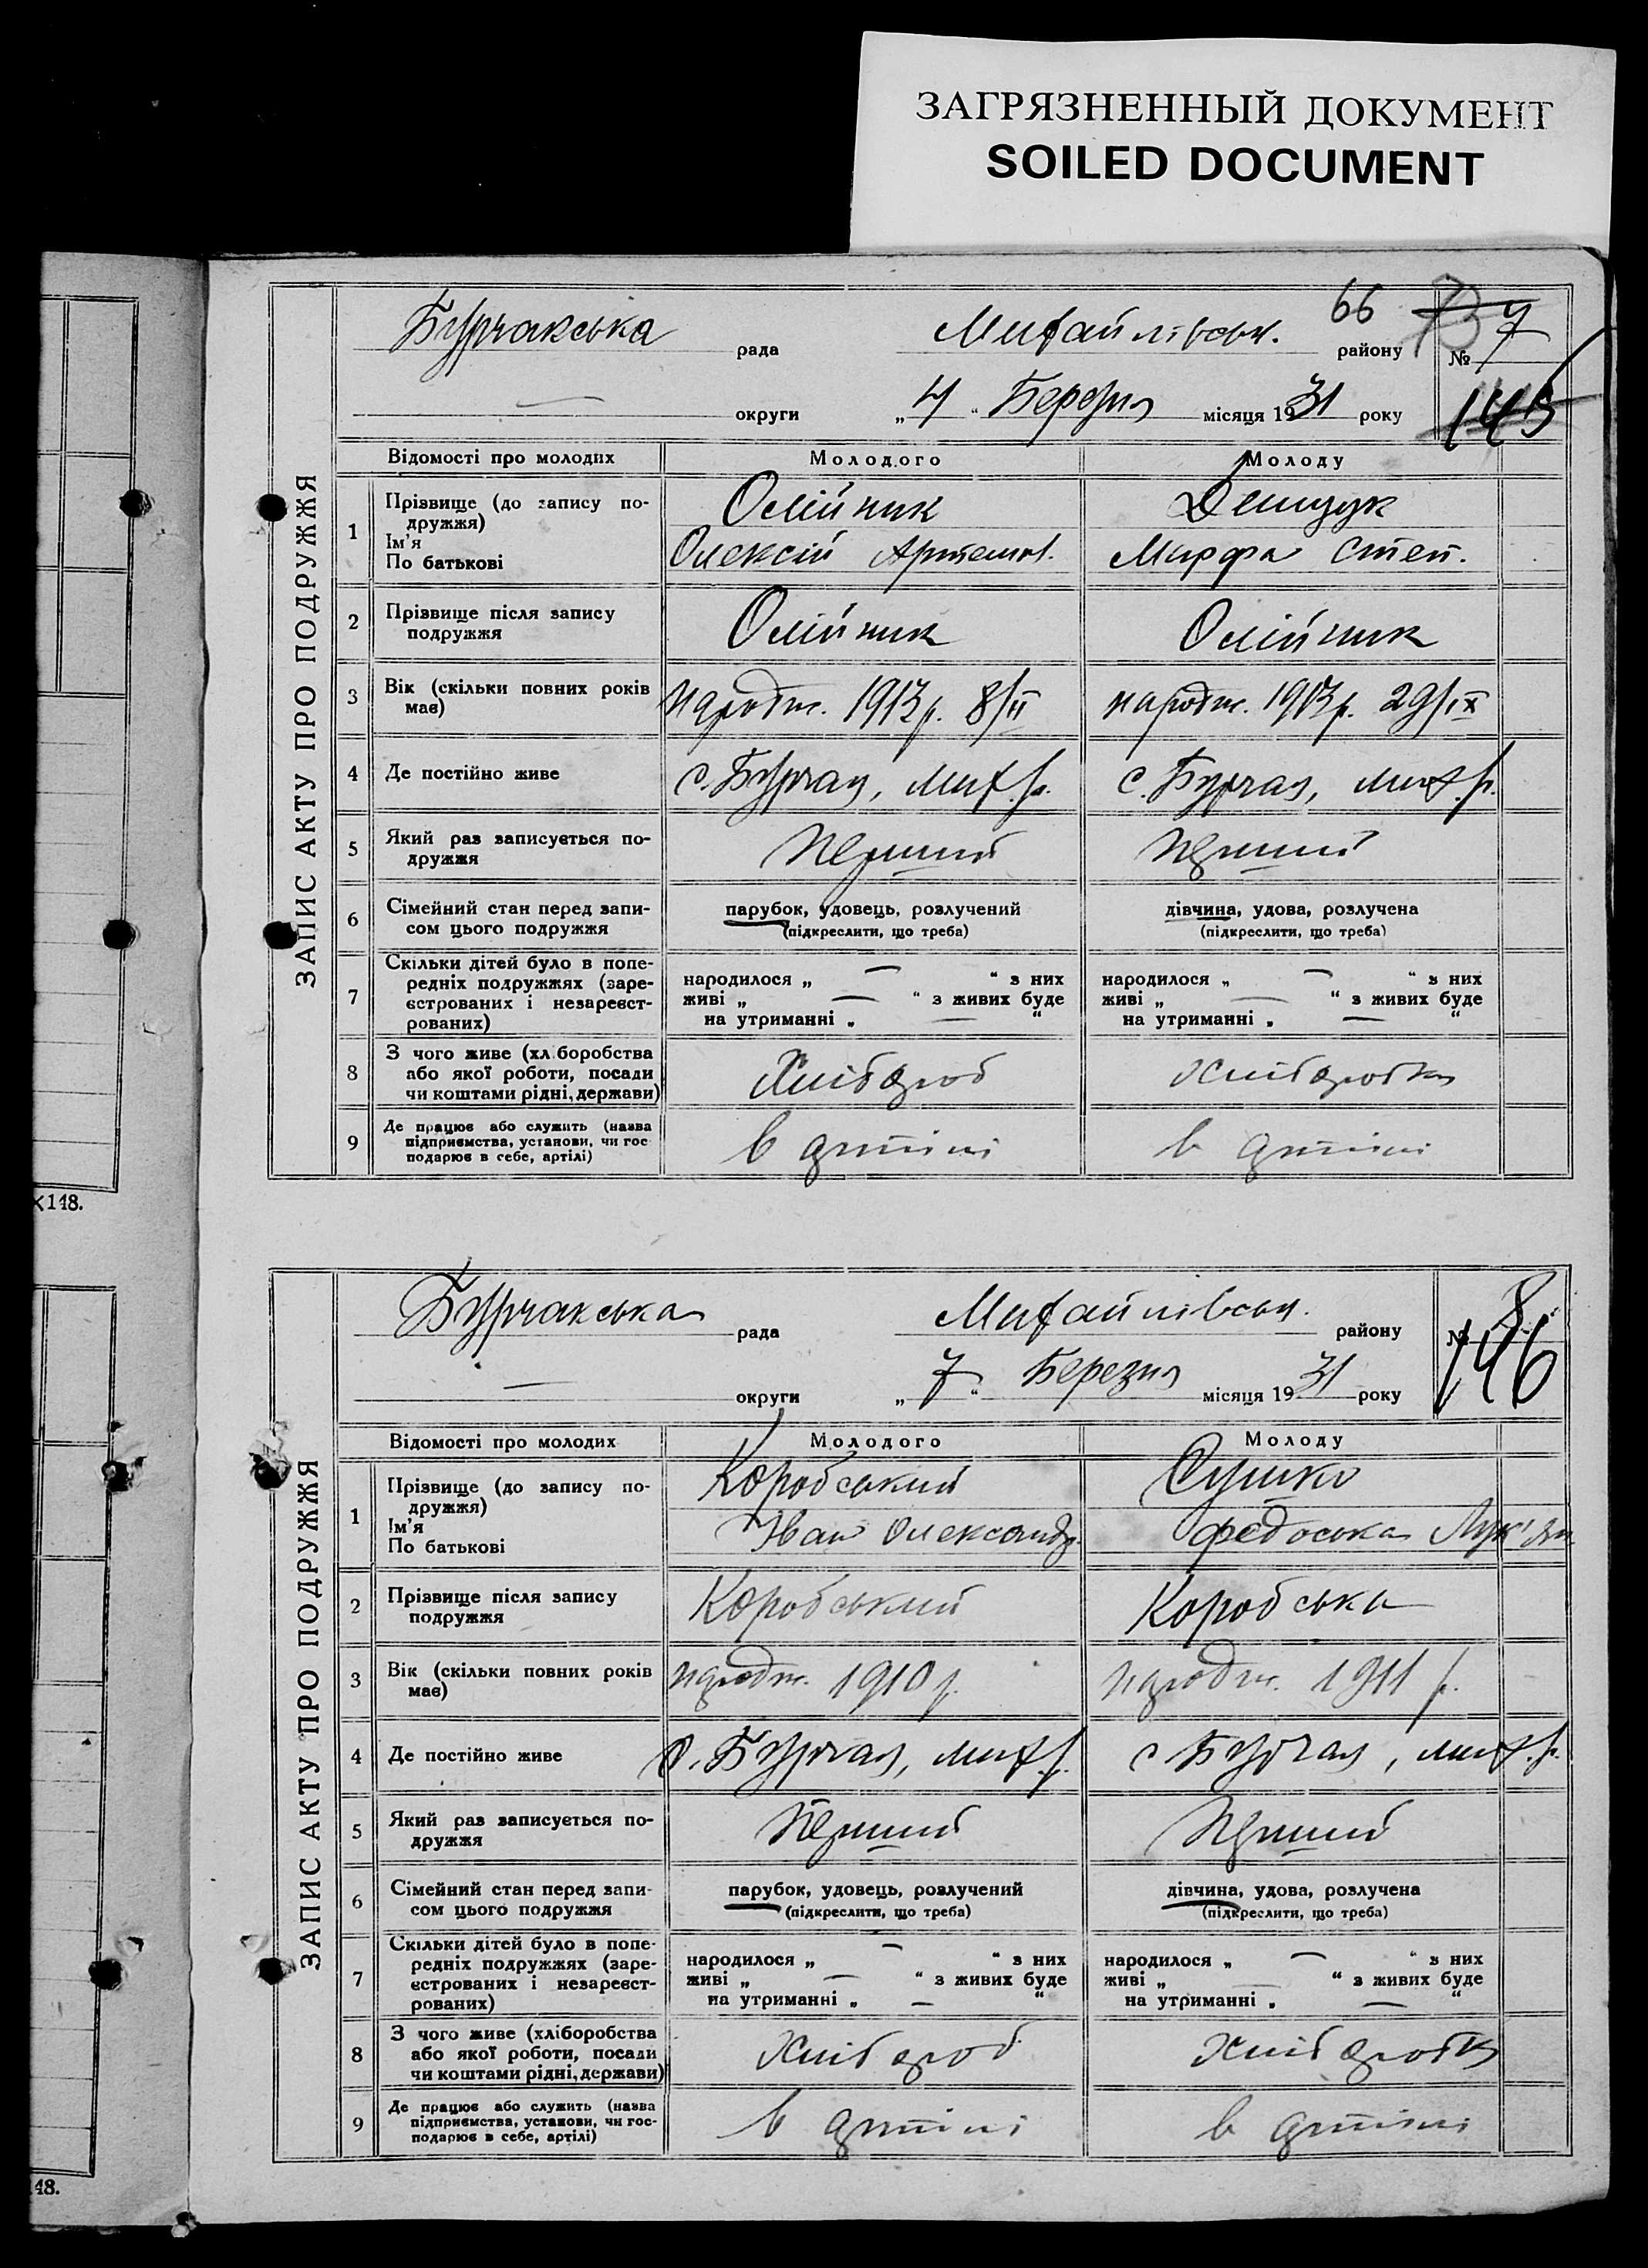 ЗАГРЯЗНЕННЫЙ ДОКУМЕНТ
SOILED DOCUMENT
ЗАПИС АКТУ ПРО ПОДРУЖЖЯ
66 73
Бурчакська рада Михайлівськ. району № 7
— округи „4“ Березня місяця 1931 року 145
Відомості про молодих Молодого Молоду
1 Прізвище (до запису по-
дружжя)
Ім'я
По батькові
Олійник
Олексій Артемов.
Демидук
Марфа Степ.
2 Прізвище після запису
подружжя
Олійник Олійник
3 Вік (скільки повних років
має)
народж. 1913 р. 8/II народж. 1913 р. 29/IX
4 Де постійно живе с. Бурчак, Мих. р. с. Бурчак, Мих. р.
5 Який раз записується по-
дружжя
Перший Перший
6 Сімейний стан перед запи-
сом цього подружжя
парубок, удовець, розлучений
(підкреслити, що треба)
дівчина, удова, розлучена
(підкреслити, що треба)
7 Скільки дітей було в попе-
редніх подружжях (заре-
єстрованих і незареєст-
рованих)
народилося „ — “ з них
живі „ — “ з живих буде
на утриманні „ — “
народилося „ — “ з них
живі „ — “ з живих буде
на утриманні „ — “
8 З чого живе (хліборобства
або якої роботи, посади
чи коштами рідні, держави)
Хлібороб Хліборобка
9 Де працює або служить (назва
підприємства, установи, чи гос-
подарює в себе, артілі)
в артілі в артілі
Х148.
ЗАПИС АКТУ ПРО ПОДРУЖЖЯ
Бурчакська рада Михайлівськ. району № 8
— округи „7“ Березня місяця 1931 року 146
Відомості про молодих Молодого Молоду
1 Прізвище (до запису по-
дружжя)
Ім'я
По батькові
Коробський
Іван Олександр.
Сушко
Федоська Лук'ян.
2 Прізвище після запису
подружжя
Коробський Коробська
3 Вік (скільки повних років
має)
народж. 1910 р. народж. 1911 р.
4 Де постійно живе с. Бурчак, Мих. р. с. Бурчак, Мих. р.
5 Який раз записується по-
дружжя
Перший Перший
6 Сімейний стан перед запи-
сом цього подружжя
парубок, удовець, розлучений
(підкреслити, що треба)
дівчина, удова, розлучена
(підкреслити, що треба)
7 Скільки дітей було в попе-
редніх подружжях (заре-
єстрованих і незареєст-
рованих)
народилося „ — “ з них
живі „ — “ з живих буде
на утриманні „ — “
народилося „ — “ з них
живі „ — “ з живих буде
на утриманні „ — “
8 З чого живе (хліборобства
або якої роботи, посади
чи коштами рідні, держави)
Хлібороб Хліборобка
9 Де працює або служить (назва
підприємства, установи, чи гос-
подарює в себе, артілі)
в артілі в артілі
148.